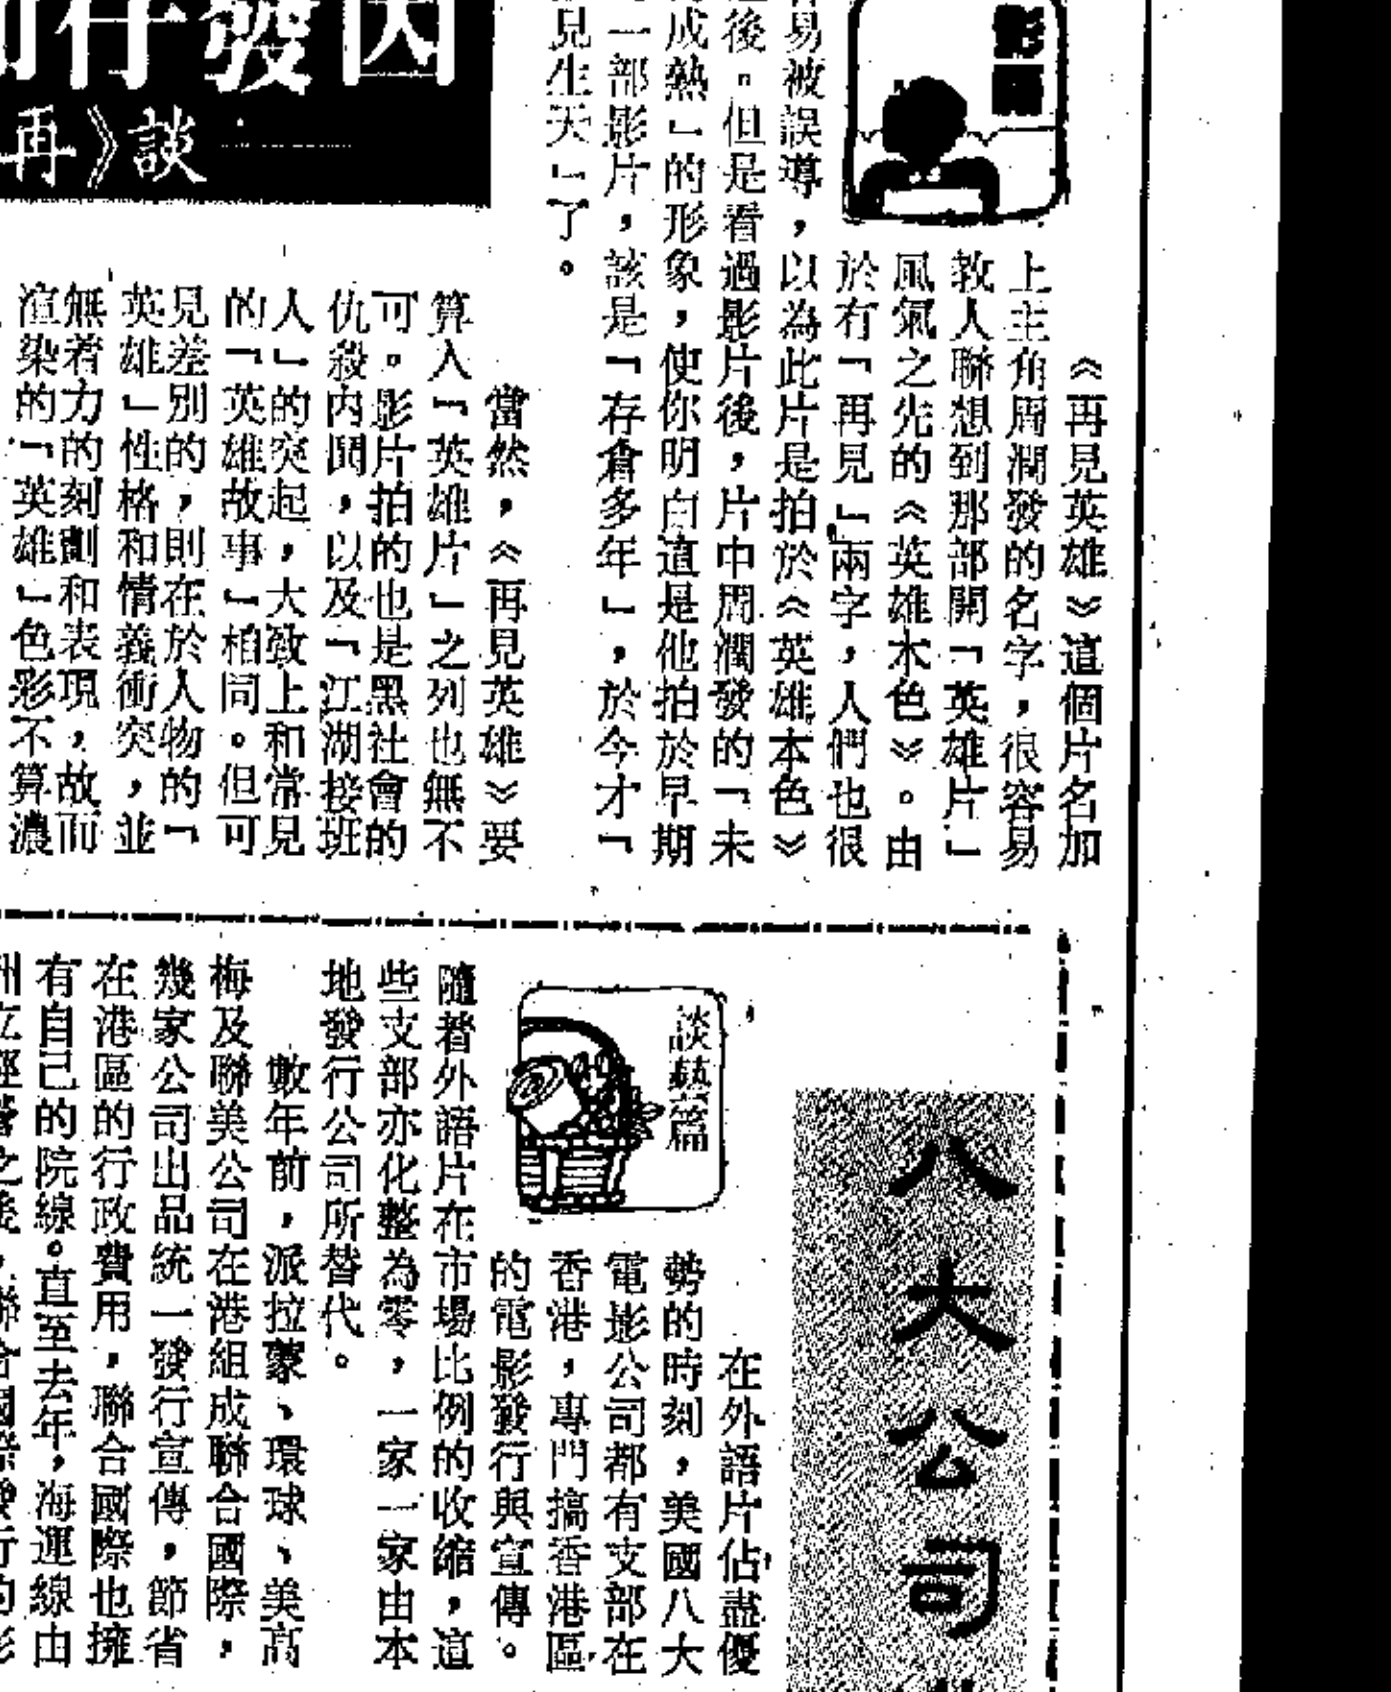 因發仔
談《再
影
《再見英雄》這個片名加
上主角周潤發的名字，很容易
教人聯想到那部開「英雄片」
風氣之先的《英雄本色》。由
於有「再見」兩字，人們也很
易被誤導，以為此片是拍於《英雄本色》
後。但是看過影片後，片中周潤發的「未
成熟」的形象，使你明白這是他拍於早期
一部影片，該是「存倉多年」，於今才「
見生天」了。
當然，《再見英雄》要
算入「英雄片」之列也無不
可。影片拍的也是黑社會的
仇殺內鬨，以及「江湖接班
人」的突起，大致上和常見
的「英雄故事」相同。但可
見差別的，則在於人物的「
英雄」性格和情義衝突，並
無着力的刻劃和表現，故而
渲染的「英雄」色彩不算濃
八大公司
談藝篇
在外語片佔盡優
勢的時刻，美國八大
電影公司都有支部在
香港，專門搞香港區
的電影發行與宣傳。
隨着外語片在市場比例的收縮，這
些支部亦化整為零，一家一家由本
地發行公司所替代。
數年前，派拉蒙、環球、美高
梅及聯美公司在港組成聯合國際，
幾家公司出品統一發行宣傳，節省
在港區的行政費用，聯合國際也擁
有自己的院線。直至去年，海運線由